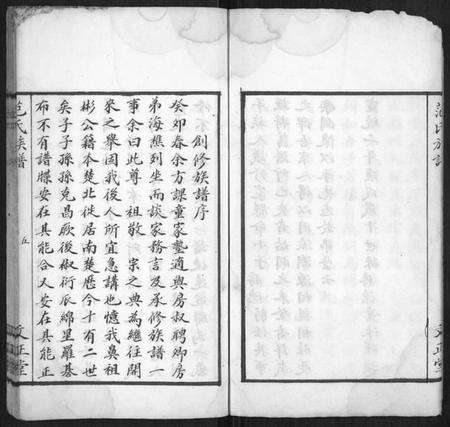 創修族譜序
癸卯春余方課童家塾適與房叔聘卿房
弟海樵列坐而談家務言及承修族譜一
事余曰此尊祖敬宗之典為繼往開
來之舉固我後人所宜急講也憶我鼻祖
彬公籍本楚北徙居南楚歷今十有二世
矣子子孫孫克昌厥後椒衍瓜綿星羅碁
布不有譜牒安在其能合又安在其能正
范氏族譜
五
文正堂
范氏族譜
文正堂